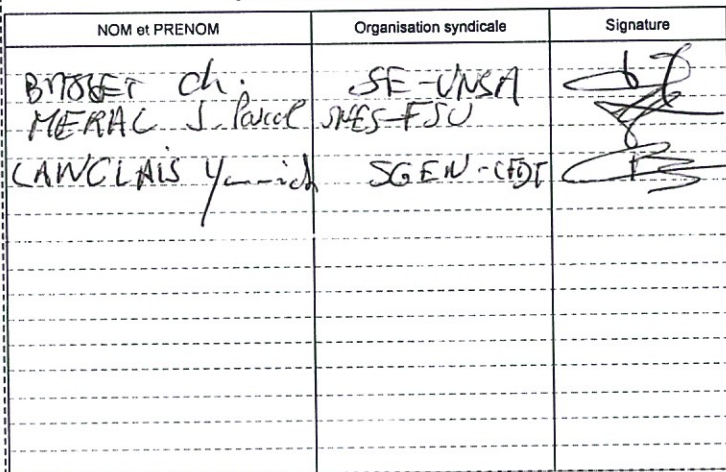 NOM et PRENOM Organisation syndicale Signature
Ch. SE-UNSA
MERAC J. Pascal SNES-FSU
LANCLAIS Yannick SGEN-CFDT